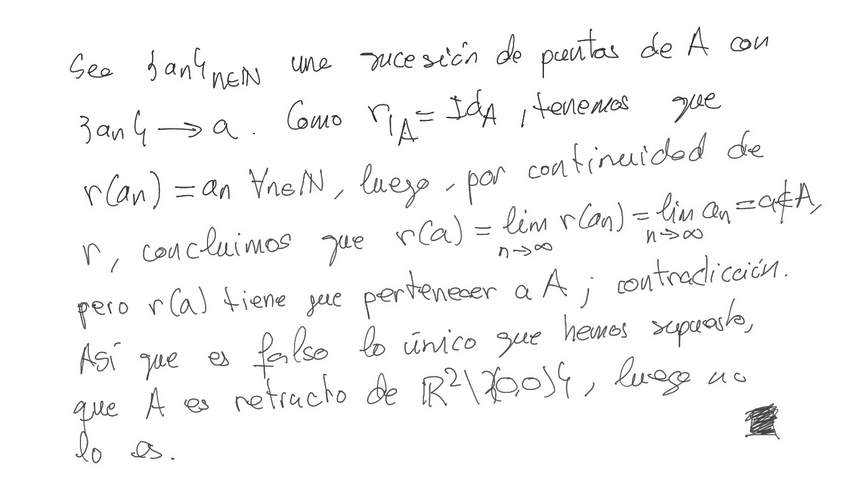 Sea {an}n∈ℕ una sucesión de puntos de A con
{an} → a. Como r|A = IdA, tenemos que
r(an) = an ∀n∈ℕ, luego, por continuidad de
r, concluimos que r(a) = lim n→∞ r(an) = lim n→∞ an = a ∉ A,
pero r(a) tiene que pertenecer a A; contradicción.
Así que es falso lo único que hemos supuesto,
que A es retracto de ℝ²\{(0,0)}, luego no
lo es.